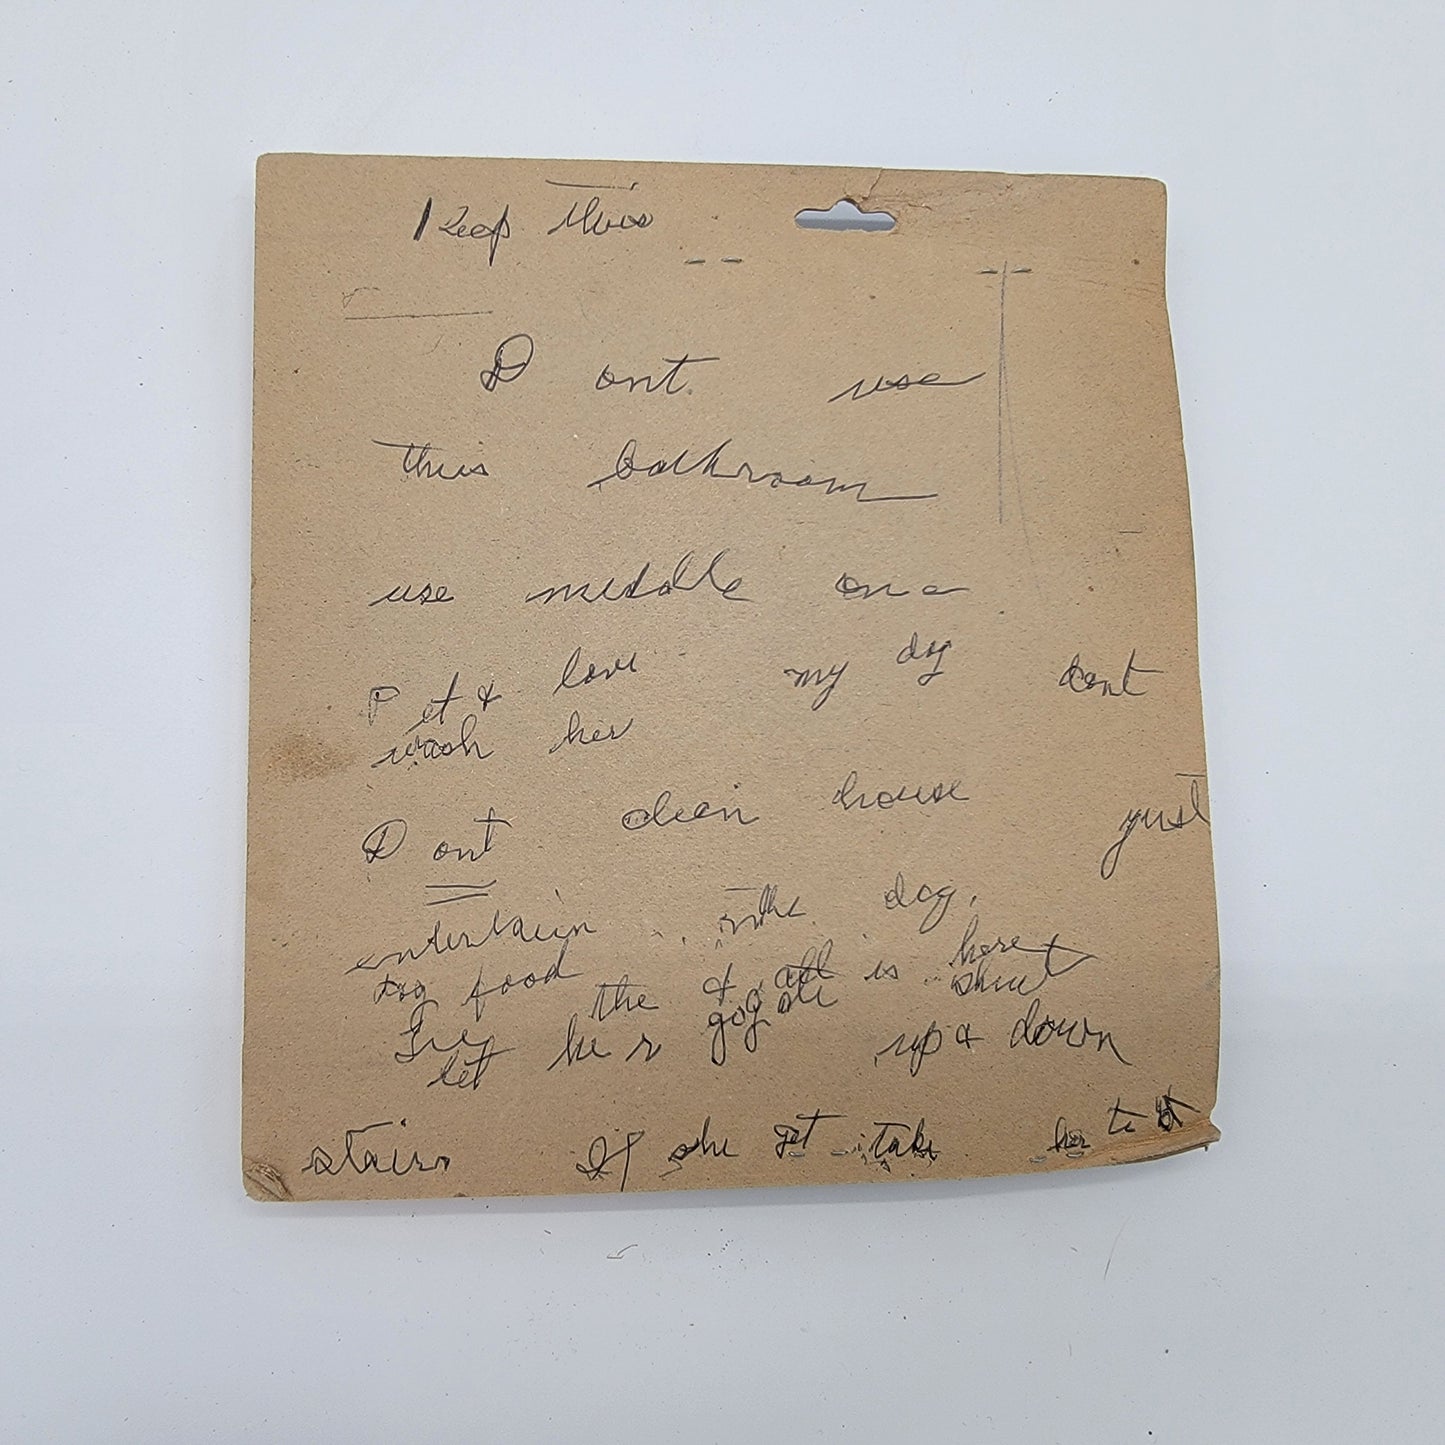 Keep this
Dont use
this bathroom
use middle one
Pet & love my dog dont
wash her
Dont clean house just
entertain the dog.
Dog food & all is here
the
let her go up & down
stairs If she get take her to